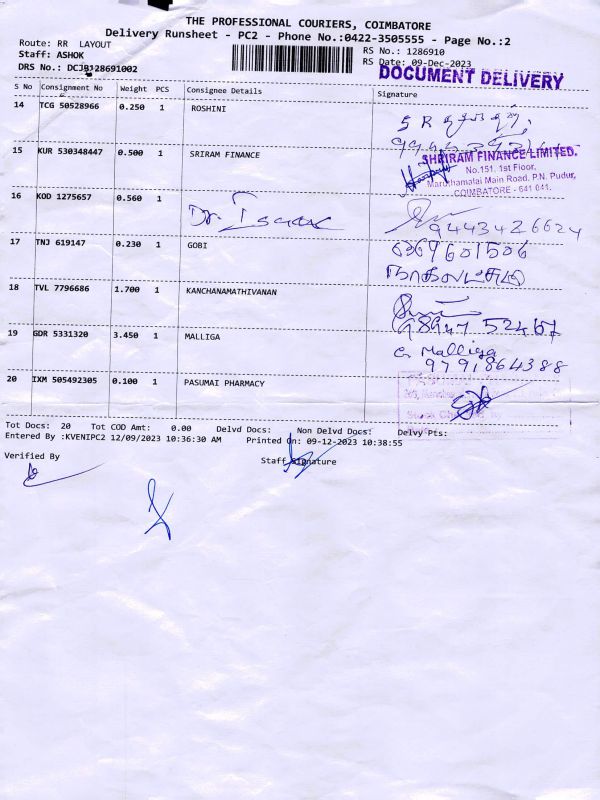 THE PROFESSIONAL COURIERS, COIMBATORE
Delivery Runsheet - PC2 - Phone No.:0422-3505555 - Page No.:2
Route: RR LAYOUT
RS No.: 1286910
Staff: ASHOK
RS Date: 09-Dec-2023
DRS No.: DCJB128691002
DOCUMENT DELIVERY
S No Consignment No Weight PCS Consignee Details Signature
14 TCG 50528966 0.250 1 ROSHINI
15 KUR 530348447 0.500 1 SRIRAM FINANCE
SHRIRAM FINANCE LIMITED.
No.151, 1st Floor,
Maruthamalai Main Road, P.N. Pudur,
COIMBATORE - 641 041.
16 KOD 1275657 0.560 1 Dr.
9443426624
17 TNJ 619147 0.230 1 GOBI
6369601506
நாகலட்சுமி
18 TVL 7796686 1.700 1 KANCHANAMATHIVANAN
98947 52467
19 GDR 5331320 3.450 1 MALLIGA
G Malliga
9791864388
20 IXM 505492305 0.100 1 PASUMAI PHARMACY
Tot Docs: 20 Tot COD Amt: 0.00 Delvd Docs: Non Delvd Docs: Delvy Pts:
Entered By :KVENIPC2 12/09/2023 10:36:30 AM Printed On: 09-12-2023 10:38:55
Verified By
Staff Signature